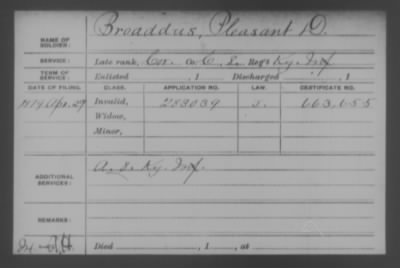 NAME OF SOLDIER: Broaddus, Pleasant D.
SERVICE: Late rank, Cor. Co. C, 8. Reg't Ky. Inf.
TERM OF SERVICE: Enlisted , 1 Discharged , 1
DATE OF FILING. CLASS. APPLICATION NO. LAW. CERTIFICATE NO.
1879 Apr. 29 Invalid, 283039 663,655
Widow,
Minor,
ADDITIONAL SERVICES: A. 8. Ky. Inf.
REMARKS:
Died , 1 , at